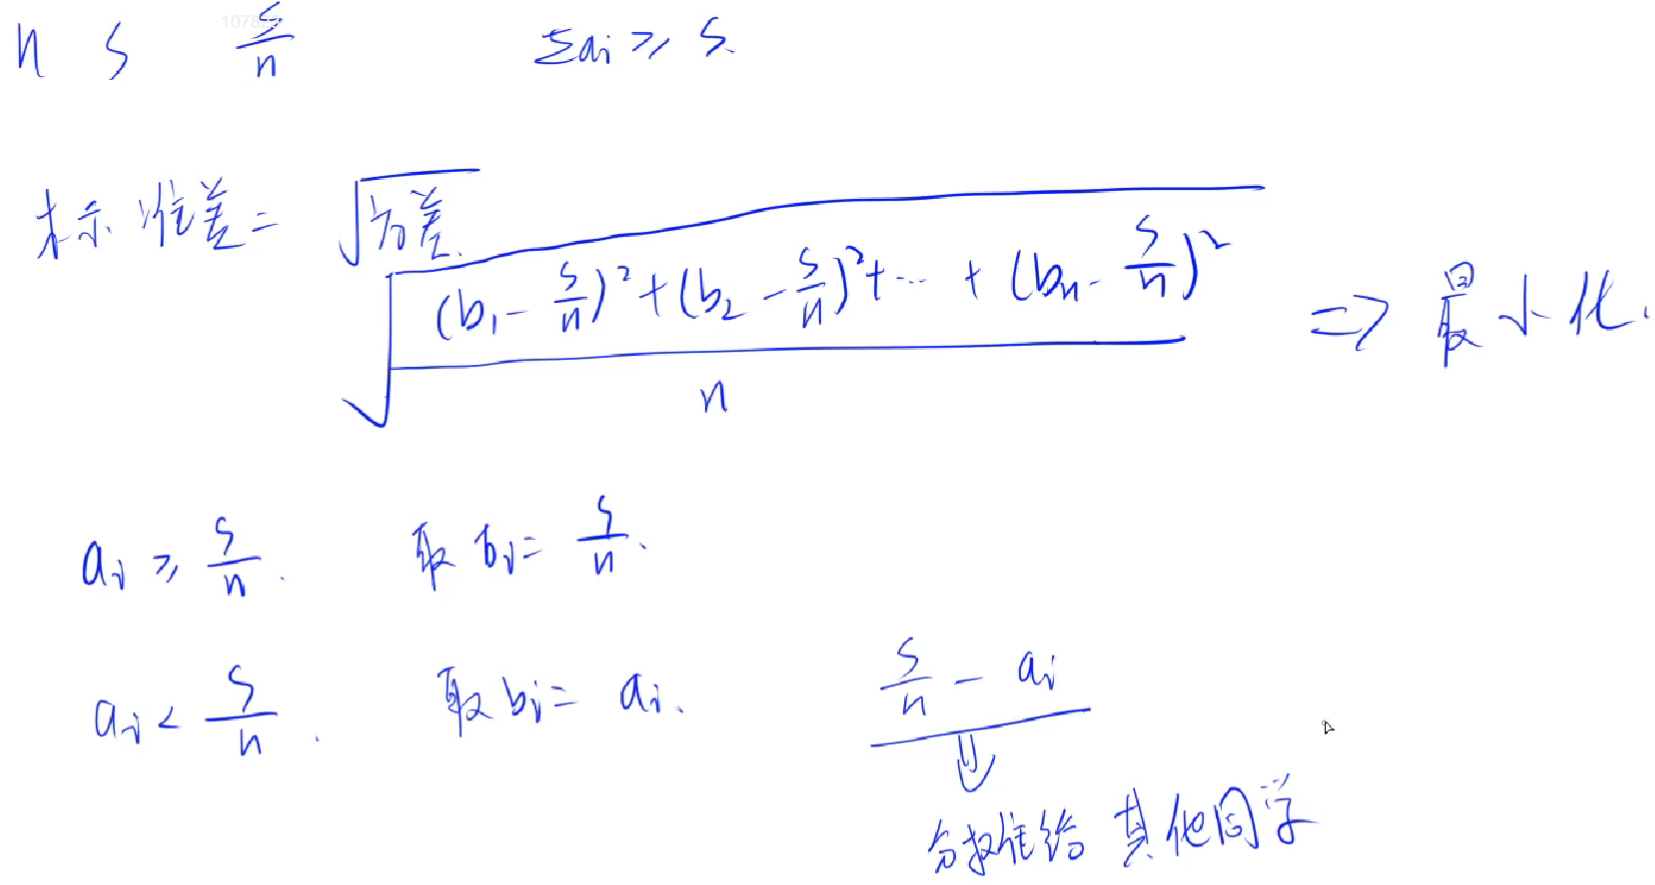 n S S/n Σai ≥ S.
标准差 = √方差
√((b₁ - S/n)² + (b₂ - S/n)² + ... + (bn - S/n)²)/n ⇒ 最小化.
ai ≥ S/n. 取 bi = S/n.
ai < S/n. 取 bi = ai. S/n - ai
分摊给其他同学